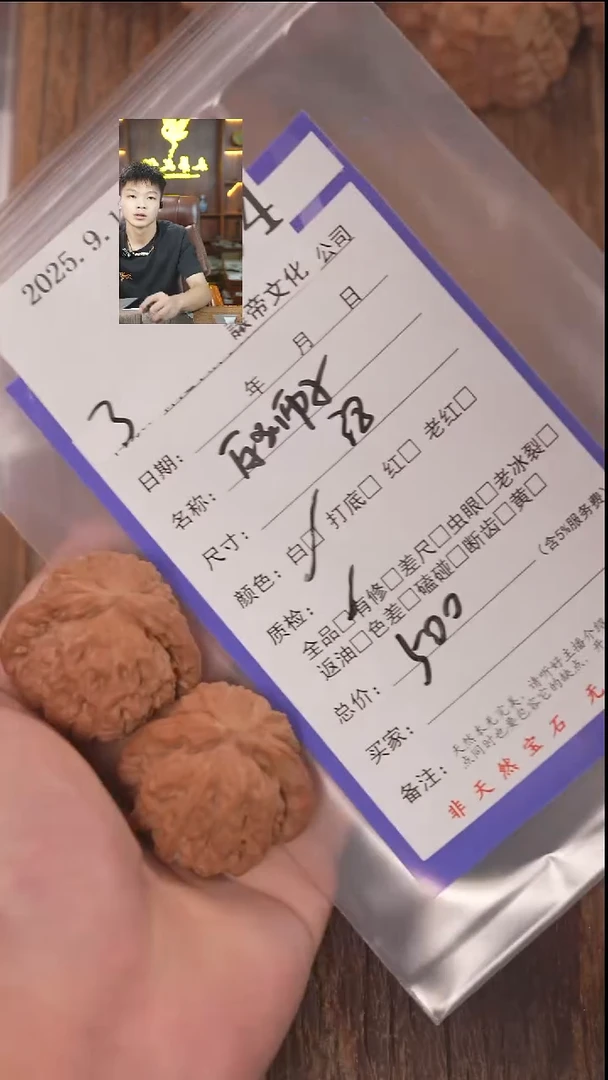 2025. 9. 1
4
帝文化 公司
3
年 月 日
日期：
名称：
尺寸：
颜色：白□ 打底□ 红□ 老红□
质检：
全品□有修□差尺□虫眼□老冰裂□
返油□色差□磕碰□断齿□黄□
总价：500 （含5%服务费
买家：
备注：
天然本无完美，请听好主播介绍
点同时也要包容它的缺点，
非 天 然 宝 石 无